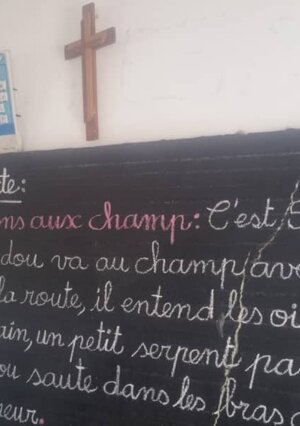 te:
ns aux champ: C'est
dou va au champ ave
la route, il entend les oi
ain, un petit serpent pa
ou saute dans les bras
eur.